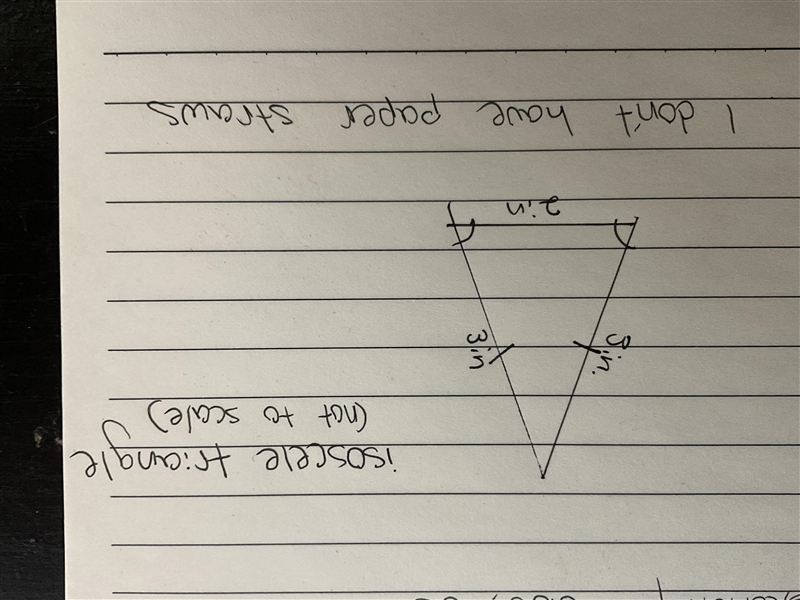 isoscele triangle
(not to scale)
3 in.
3 in
2 in
I don't have paper straws